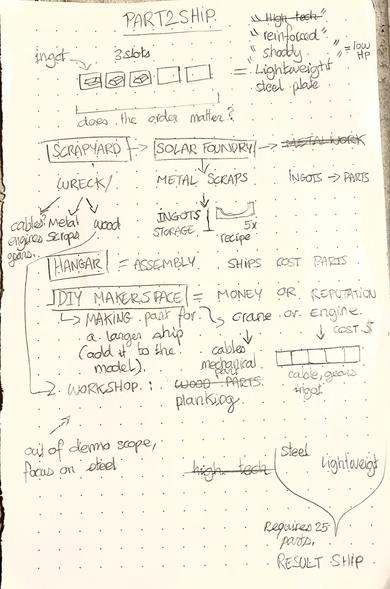 PART2SHIP.
ingot
3 slots
"High tech"
"reinforced"
"shoddy"
= low HP
= Lightweight
steel plate
does the order matter?
SCRAPYARD → SOLAR FOUNDRY → METALWORK
WRECK/
METAL SCRAPS
INGOTS → PARTS
cables?
engines
gears.
Metal
scraps
wood
INGOTS
STORAGE
5x
recipe
HANGAR = ASSEMBLY
SHIPS COST PARTS
DIY MAKERSPACE = MONEY OR REPUTATION
→ MAKING part for
a larger ship
(add it to the
model).
crane or engine.
cables
mechanical
parts
COST $
cable, gears
ingot
WORKSHOP:
WOOD PARTS.
planking
out of demo scope,
focus on steel
high tech
steel
Lightweight
Requires 25
parts.
RESULT SHIP